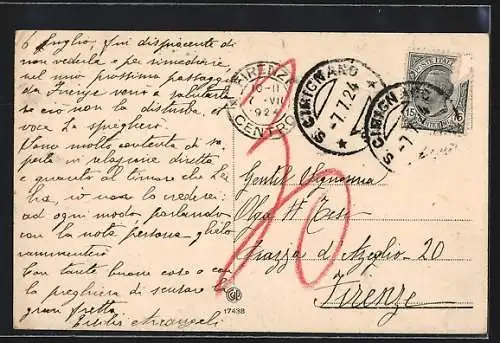 6 luglio, fui dispiacente di
non vederla e per rimediare
nel mio prossimo passaggio
da Firenze verrò a salutarla
se ciò non la disturba, ci
voca La spiegherò.
Sono molto contenta di sa-
perla in relazione diretta
e quanto al timore che Le
ha, io non lo credere:
ad ogni modo parlando
con la nota persona glielo
rammenterò
Con tante buone cose e con
la preghiera di scusare la
gran fretta
Arcangeli
FIRENZE
10-11
VII
192
CENTRO
S. CIRIGNANO
-7.7.24
S. CIRIGNANO
-7.7
POSTE ITALIANE
15
30
Gentil Signorina
Olga
Piazza d'Azeglio 20
Firenze
17438